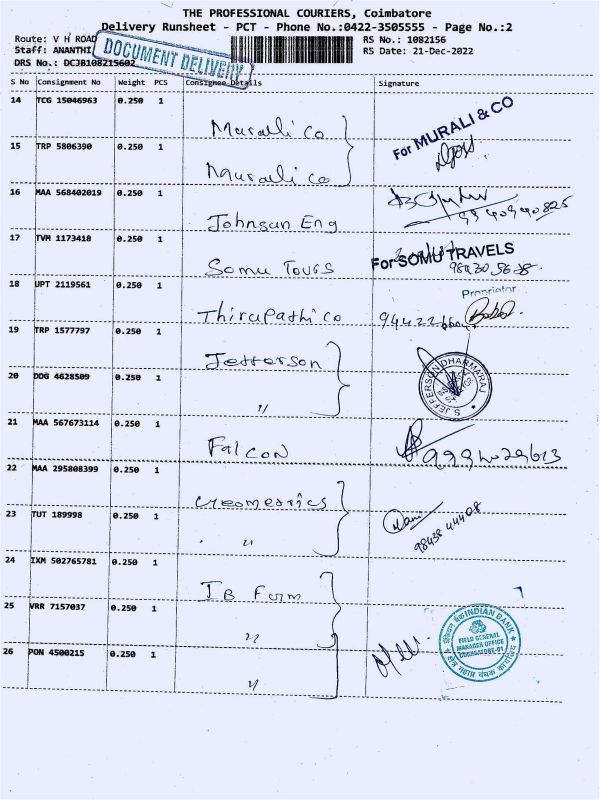 THE PROFESSIONAL COURIERS, Coimbatore
Delivery Runsheet - PCT - Phone No.:0422-3505555 - Page No.:2
Route: V H ROAD
RS No.: 1082156
Staff: ANANTHI
RS Date: 21-Dec-2022
DRS No.: DCJB108215602
DOCUMENT DELIVERY
S No Consignment No Weight PCS Consignee Details Signature
14 TCG 15046963 0.250 1 Murali Co
For MURALI & CO
15 TRP 5806390 0.250 1 Murali Co
16 MAA 568402019 0.250 1 Johnsun Eng
17 TVM 1173418 0.250 1 Somu Tours
For SOMU TRAVELS
Proprietor
18 UPT 2119561 0.250 1 Thirupathi Co
19 TRP 1577797 0.250 1 Jefferson
S. JEFFERSON DHARMARAJ
20 DDG 4628509 0.250 1 "
21 MAA 567673114 0.250 1 Falcon
22 MAA 295808399 0.250 1 Geometrics
23 TUT 189998 0.250 1 "
98438 44408
24 IXM 502765781 0.250 1 IB Form
25 VRR 7157037 0.250 1 "
इंडियन बैंक INDIAN BANK
FIELD GENERAL
MANAGER OFFICE
COIMBATORE-01
26 PON 4500215 0.250 1 "